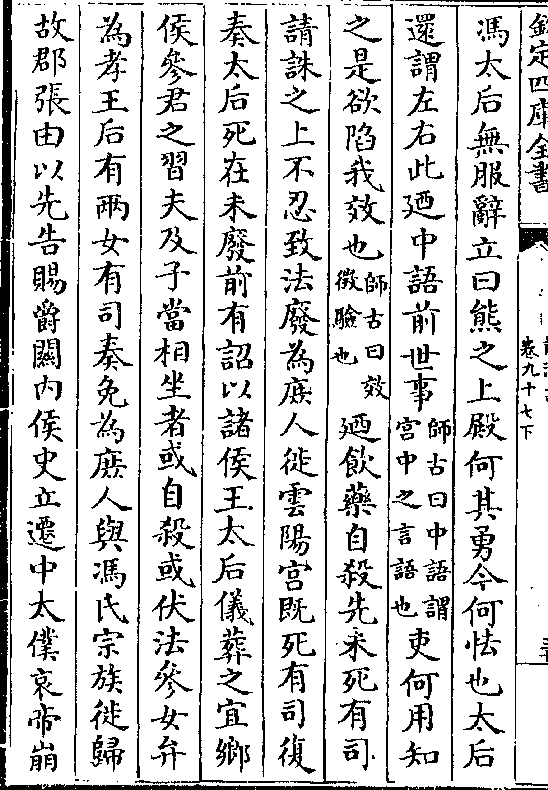 欽定四庫全書
卷九十七下
馮太后無服辭立曰熊之上殿何其勇今何怯也太后
還謂左右此廼中語前世事師古曰中語謂宫中之言語也吏何用知
之是欲陷我效也師古曰效徴驗也廼飲藥自殺先未死有司
請誅之上不忍致法廢為庶人徙雲陽宫既死有司復
奏太后死在未廢前有詔以諸侯王太后儀葬之宜鄉
侯參君之習夫及子當相坐者或自殺或伏法參女弁
為孝王后有兩女有司奏免為庶人與馮氏宗族徙歸
故郡張由以先告賜爵關内侯史立遷中太僕哀帝崩